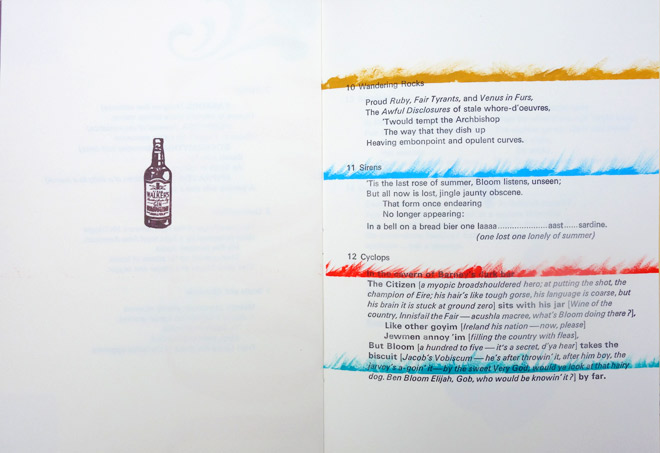 WALKER'S
10 Wandering Rocks
Proud Ruby, Fair Tyrants, and Venus in Furs,
The Awful Disclosures of stale whore-d'oeuvres,
'Twould tempt the Archbishop
The way that they dish up
Heaving embonpoint and opulent curves.
11 Sirens
'Tis the last rose of summer, Bloom listens, unseen;
But all now is lost, jingle jaunty obscene.
That form once endearing
No longer appearing:
In a bell on a bread bier one laaaa......................aast......sardine.
(one lost one lonely of summer)
12 Cyclops
In the cavern of Barney's dark bar
The Citizen [a myopic broadshouldered hero; at putting the shot, the
champion of Eire; his hair's like tough gorse, his language is coarse, but
his brain it is stuck at ground zero] sits with his jar [Wine of the
country, Innisfail the Fair — acushla macree, what's Bloom doing there?],
Like other goyim [Ireland his nation — now, please]
Jewmen annoy 'im [filling the country with fleas],
But Bloom [a hundred to five — it's a secret, d'ya hear] takes the
biscuit [Jacob's Vobiscum — he's after throwin' it, after him boy, the
jarvey's a-goin' it — by the sweet Very God, would ya look at that hairy
dog. Ben Bloom Elijah, Gob, who would be knowin' it?] by far.